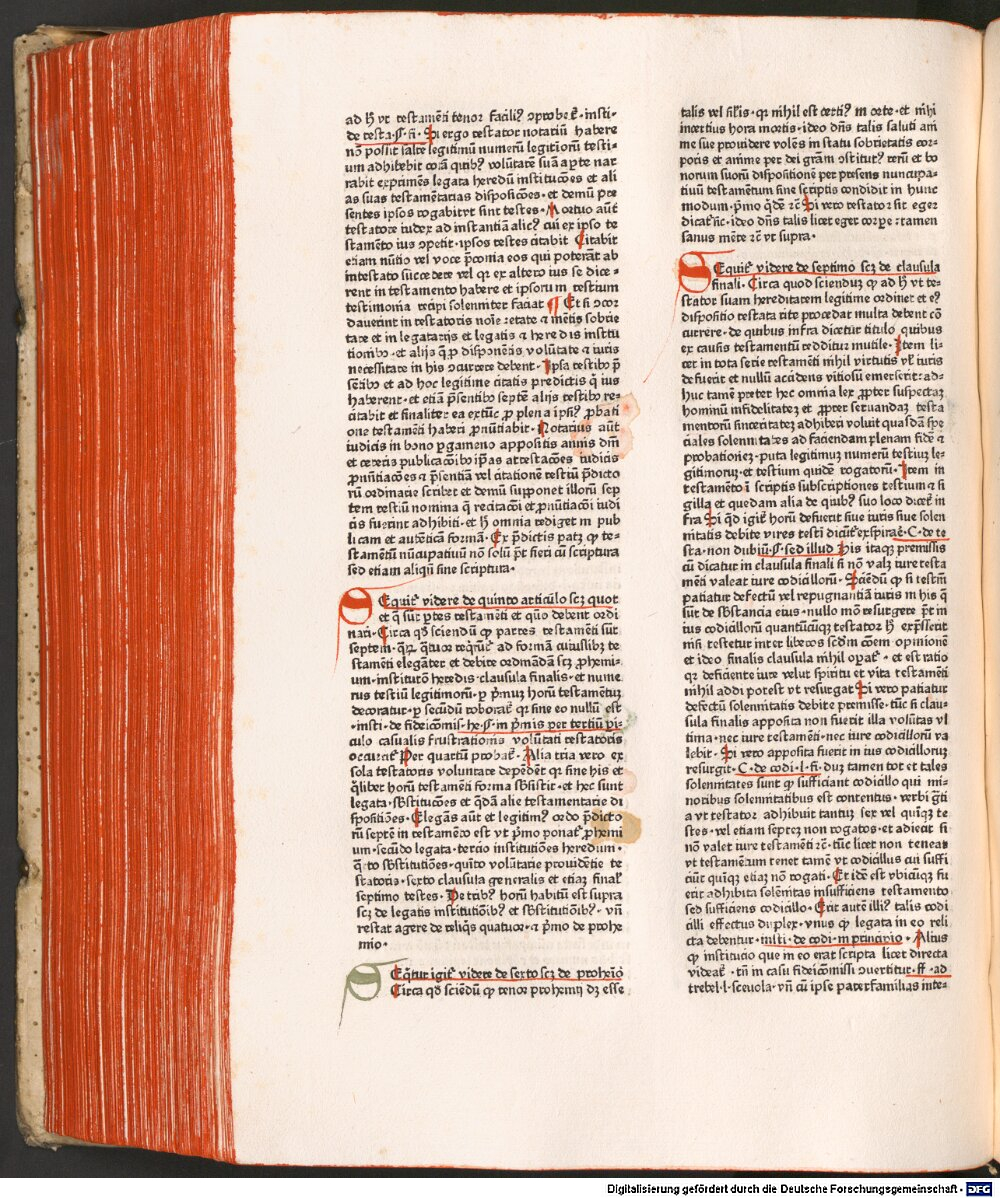 ad hͦ vt testamēti tenor facili⁹ ꝓbet᷑ · insti-
de testa · §· fi · Si ergo testator notariū habere
nō possit saltē legitimū numerū legitiorū testi-
um adhibebit corā quibꝰ volūtatē suā aꝑte nar
rabit exprimēs legata heredū institucōes et ali
as suas testamētarias disposicōes · et demū pre
sentes ipsos rogabit vt sint testes · Mortuo aūt
testatore iudex ad instantiā alic⁹ cui ex ipso te
stamēto ius ꝯpetit · ipsos testes citabit Citabit
etiam nūtio vel voce p̄conia eos qui poterāt ab
intestato succedere vel qr ex altero ius se dice-
rent in testamento habere et ipsorum testium
testimonia recipi solenniter faciat ¶ Et si ꝯcor
dauerint in testatoris noīe etate ⁊ mētis sobrie
tate et in legatarijs et legatis ⁊ heredis institu
tionibꝰ · et alijs q̄ ꝑ disponētis volūtatē ⁊ iuris
necessitate in his ꝯcurrere debent · Ipsa testibꝰ p̄
sētibꝰ et ad hoc legitime citatis predictis q̄ ius
haberent · et etiā p̄sentibꝰ septē alijs testibꝰ re-
citabit et finaliter ea extūc ꝓ plena ipsi⁹ ꝓbati
one testamēti haberi ꝓnūtiabit · Notarius aūt
iudicis in bono ꝑgameno appositis annis dn̄i
et ceteris publicacōibꝰ ip̄as attestacōes iudicis
ꝓnūtiacōes ⁊ p̄sentiā vel citationē testiū p̄dicto
rū ordinarie scribet et demū supponet illorū sep
tem testiū nomina q̄ recitacōi et ꝓnūtiacōi iudi
cis fuerint adhibiti · et hͦ omnia rediget in pub
licam et autēticā formā · Ex p̄dictis patꝫ ꝙ te-
stamētū nūcupatiuū nō solū p̄t fieri cū scriptura
sed etiam aliqn̄ sine scriptura ·
SEquit᷑ videre de quinto articulo scꝫ quot
et q̄ sūt ꝑtes testamēti et quō debent ordi
nari · Circa qḋ sciendū ꝙ partes testamēti sūt
septem · qrꝫ q̄tuor req̄rūt᷑ ad formā cuiuslibꝫ te
stamēti elegāter et debite ordinādā scꝫ ꝓhemi-
um · institutio heredis · clausula finalis · et nume
rus testiū legitimorū · ꝑ p̄muꝫ horū testamētuꝫ
decoratur · ꝑ secūdū roborat᷑ qr sine eo nullū est
· insti · de fideicōmis · he · §· in p̄mis per tertiū pi-
culo casualis frustrationis volūtati testatoris
occurrit᷑ Per quartū probat᷑ · Alia tria vero ex
sola testatoris voluntate depēdēt qr sine his et
q̄libet horū testamēti forma sb̄sistit · et hec sunt
legata · sb̄stitucōes et q̄dā alie testamentarie di
spositiōes · Elegās aūt et legitim⁹ ordo p̄dicto
rū septē in testamēto est vt p̄mo ponat᷑ ꝓhemi
um · secūdo legata · tercio institutiōes heredum ·
q̄rto sb̄stitutiōes · quīto volūtarie prouidētie te
statoris · sexto clausula generalis et etiaꝫ final᷑
septimo testes · De tribꝰ horū habitū est supra
scꝫ de legatis institutiōibꝰ et sb̄stitutiōibꝰ · vn̄
restat agere de reliq̄s quatuor · ⁊ p̄mo de prohe
mio ·
SEq̄tur igit᷑ videre de sexto scꝫ de prohemio
Circa qḋ sciēdū ꝙ tenor prohemij dꝫ esse
talis vel sil̄is · qr nihil est certi⁹ morte · et nihil
incertius hora mortis · ideo dn̄s talis saluti aīe
me sue prouidere volēs in statu sobrietatis cor-
poris et anime per dei grām ꝯstitut⁹ rerū et bo
norum suorū dispositionē per presens nuncupa-
tiuū testamentum sine scriptis condidit in hunc
modum · p̄mo qdē ⁊c̄ Si vero testator sit eger
dicat᷑ sic · ideo dn̄s talis licet eger corꝑe · tamen
sanus mēte ⁊c̄ vt supra ·
SEquit᷑ videre de septimo scꝫ de clausula
finali · Circa quod sciendum ꝙ ad hͦ vt te-
stator suam hereditatem legitime ordinet et ei⁹
dispositio testata rite procedat multa debent cō
currere · de quibus infra dicetur titulo quibus
ex causis testamentū redditur inutile · Item li-
cet in tota serie testamēti nihil virtutis vel iuris
defuerit et nullū accidens vitiosū emerserit : ad-
huc tamē preter hec omnia lex ꝓpter suspectaꝫ
hominū infidelitateꝫ et ꝓpter seruandaꝫ testa
mentorū sinceritateꝫ adhiberi voluit quasdā spe
ciales solennitates ad faciendam plenam fidē ⁊
probationeꝫ · puta legitimuꝫ numerū testiuꝫ le-
gitimoruꝫ · et testium quidē rogatorū · Item in
testamēto ī scriptis subscriptiones testium ⁊ si
gilla et quedam alia de quibꝰ suo loco dicet᷑ in
fra Si qḋ igit᷑ horū defuerit siue iuris siue solen
nitatis debite vires testi dicūt᷑ exspirare · C · de te
sta · non dubiū · §· sed illud His itaqꝫ premissis
cū dicatur in clausula finali si nō valꝫ iure testa
mēti valeat iure codicillorū · Sciēdū ꝙ si testm̄
patiatur defectū vel repugnantiā iuris in his q̄
sūt de sb̄stancia eius · nullo mō resurgere p̄t in
ius codicillorū quantūcūqꝫ testator hͦ exp̄sserit
nisi testetur inter liberos scdm̄ cōem opinionē
et ideo finalis clausula nihil oꝑat᷑ · et est ratio
qr deficiente iure velut spiritu et vita testamēti
nihil addi potest vt resurgat Si vero patiatur
defectū solennitatis debite premisse · tūc si clau-
sula finalis apposita non fuerit illa volūtas vl
tima · nec iure testamēti · nec iure codicillorū va
lebit · Si vero apposita fuerit in ius codicilloruꝫ
resurgit · C · de codi · l · fi · duꝫ tamen tot et tales
solennitates sunt ꝙ sufficiant codicillo qui mi-
noribus solennitatibus est contentus · verbi gr̄ti
a vt testator adhibuit tantuꝫ sex vel quīqꝫ te
stes · vel etiam septeꝫ non rogatos · et adiecit si
nō valet iure testamēti ⁊c̄ · tūc licet non teneat
vt testamētum tenet tamē vt codicillus cui suffi
ciūt quīqꝫ etiaꝫ nō rogati · Et idē est vbicūqꝫ fu
erit adhibita solēnitas insufficiens testamento
sed sufficiens codicillo · Erit autē illi⁹ talis codi
cilli effectus duplex · vnus ꝙ legata in eo reli
cta debentur · insti · de codi · in principio · Alius
ꝙ institucio que in eo erat scripta licet directa
videat᷑ · tn̄ in casu fideicōmissi ꝯuertitur · ff · ad
trebel · l · sceuola · vn̄ cū ipse paterfamilias inte-
Digitalisierung gefördert durch die Deutsche Forschungsgemeinschaft - DFG